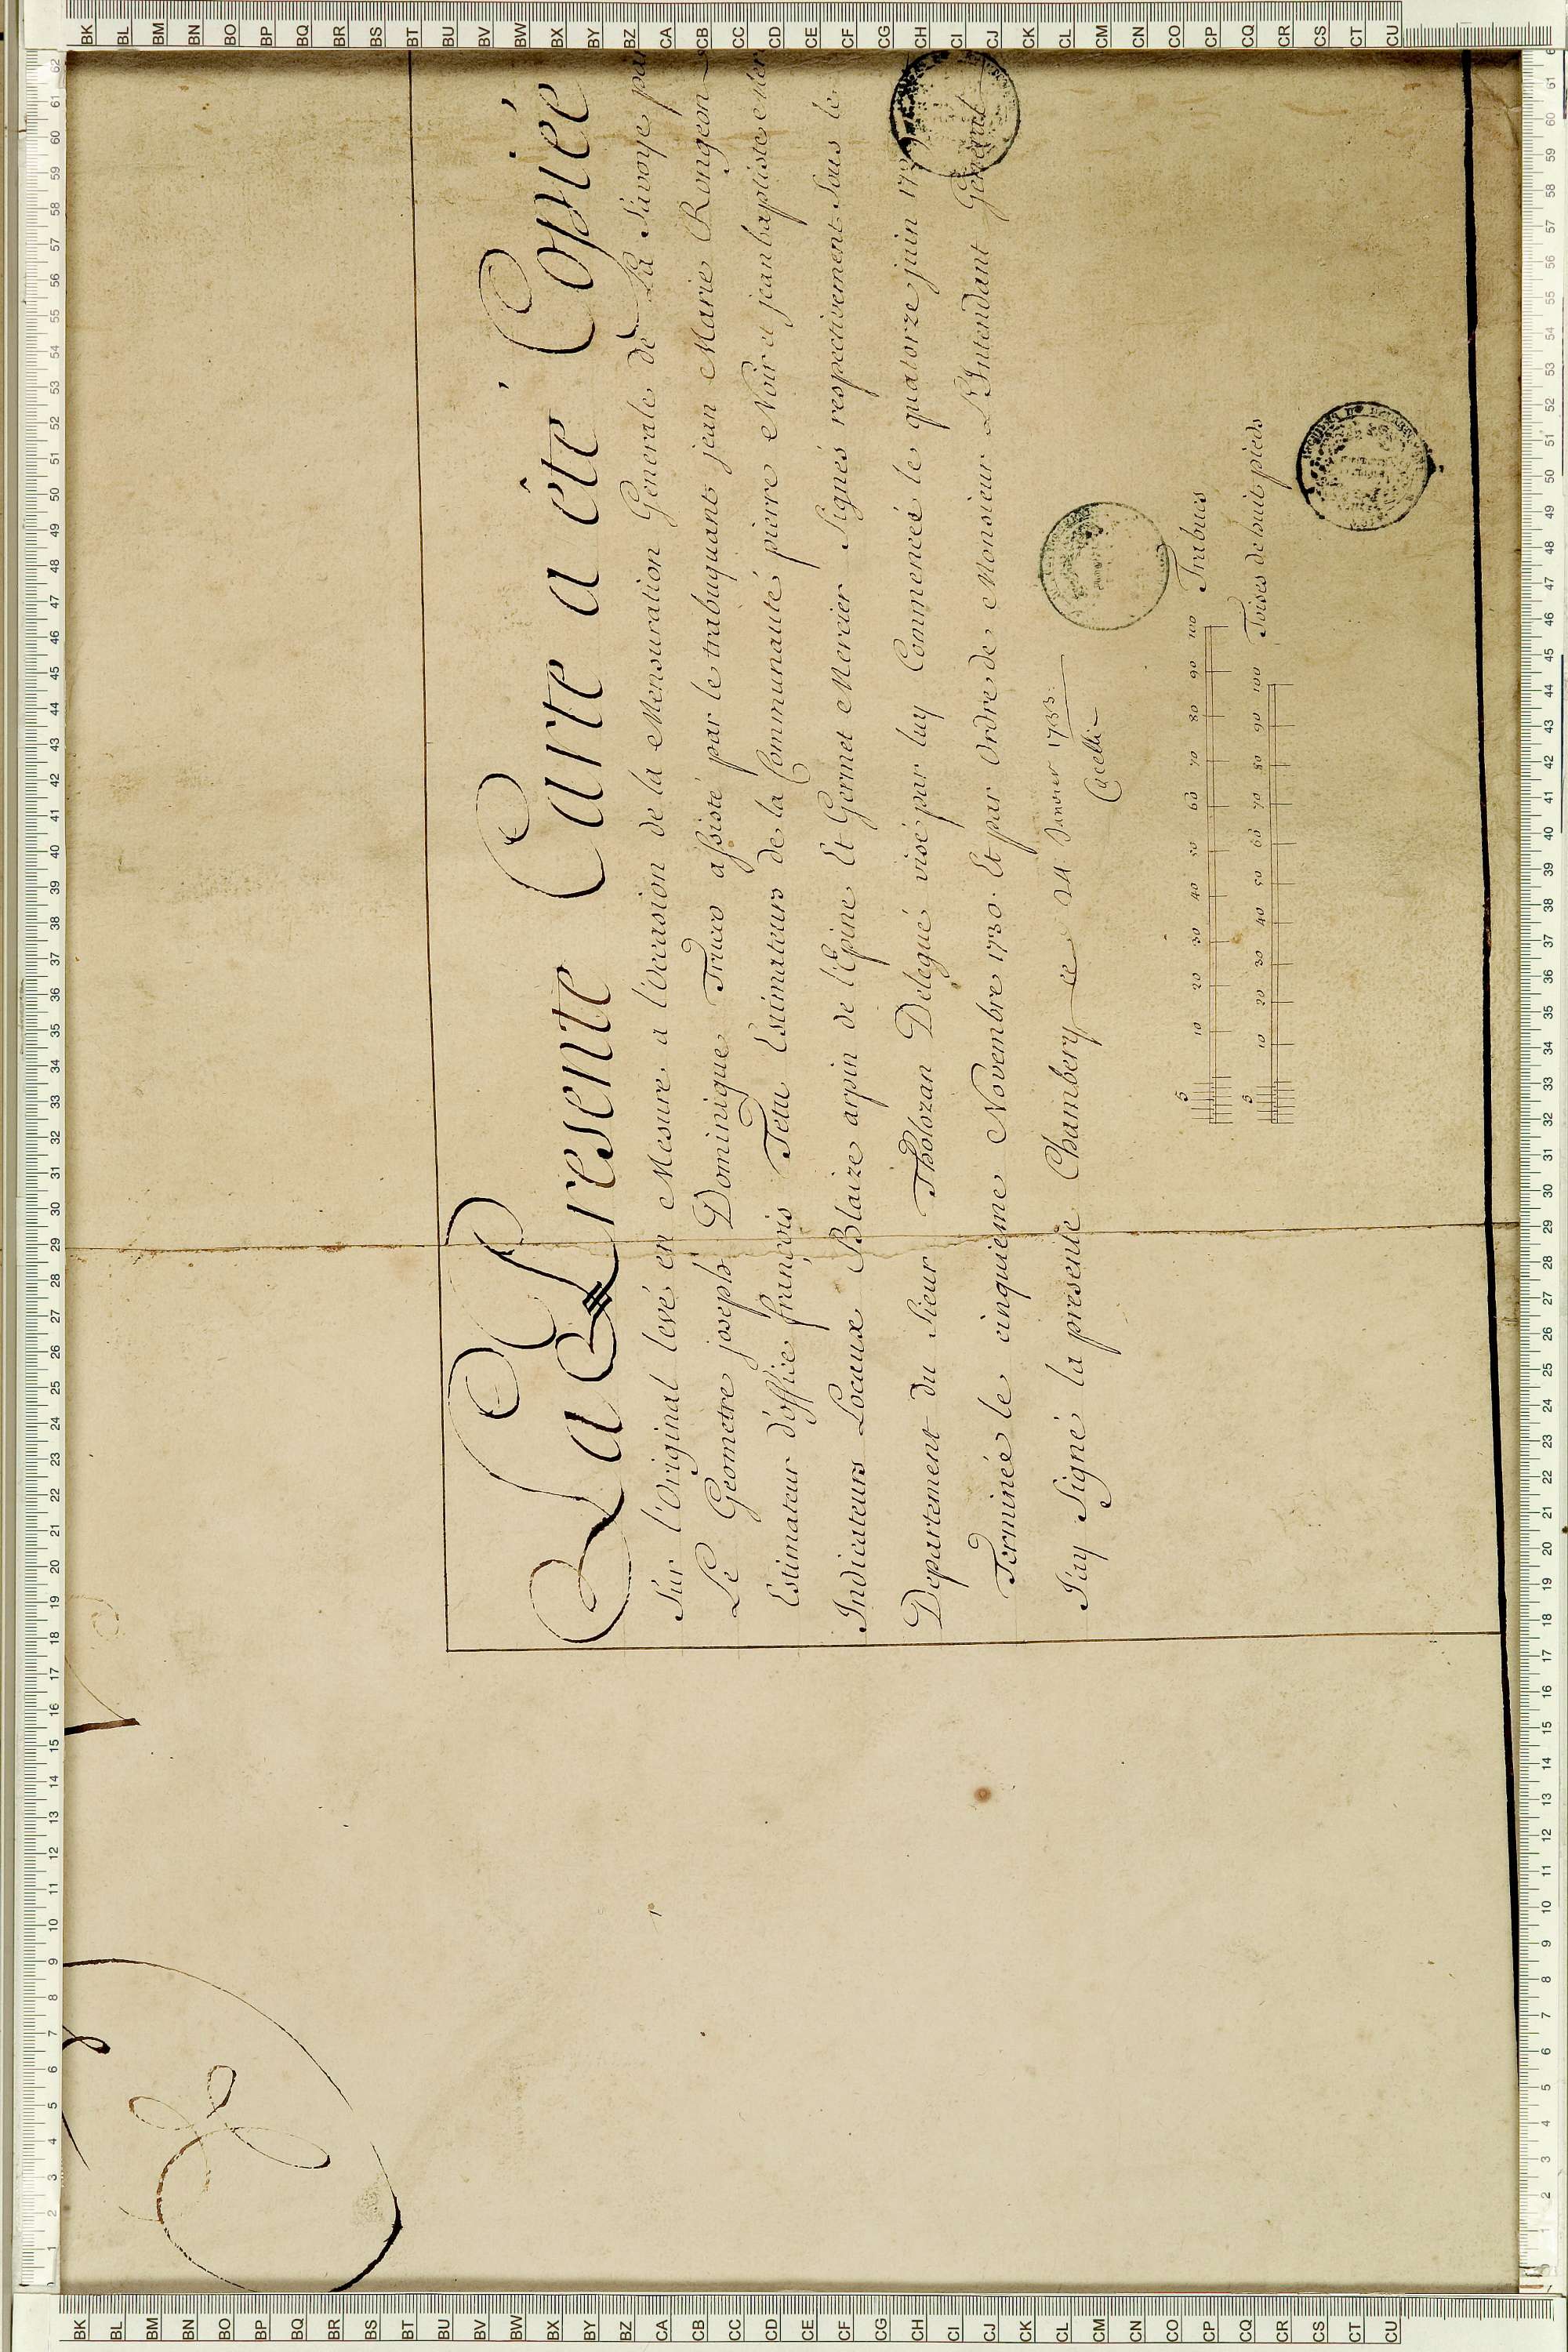 La Presente Carte a été Copiée
Sur l'Original levé en Mesure a l'occasion de la Mensuration Generale de La Savoye par
Le Geometre joseph Dominique Truco assisté par le trabuquant jean Marie Rongeon
Estimateur d'office françois Tetu Estimateurs de la Communauté pierre Noir et jean baptiste
Indicateurs Locaux Blaize arpin de l'Epine Et Germet Mercier Signés respectivement Sous le
Departement du Sieur Tholozan Delegué visé par luy Commencée le quatorze juin
Terminée le cinquieme Novembre 1730. Et par Ordre de Monsieur L'Intendant General
J'ay Signé la presente Chambery ce 24 Janvier 1733.
5 10 20 30 40 50 60 70 80 90 100 Trabucs
5 10 20 30 40 50 60 70 80 90 100 Toises de huit pieds